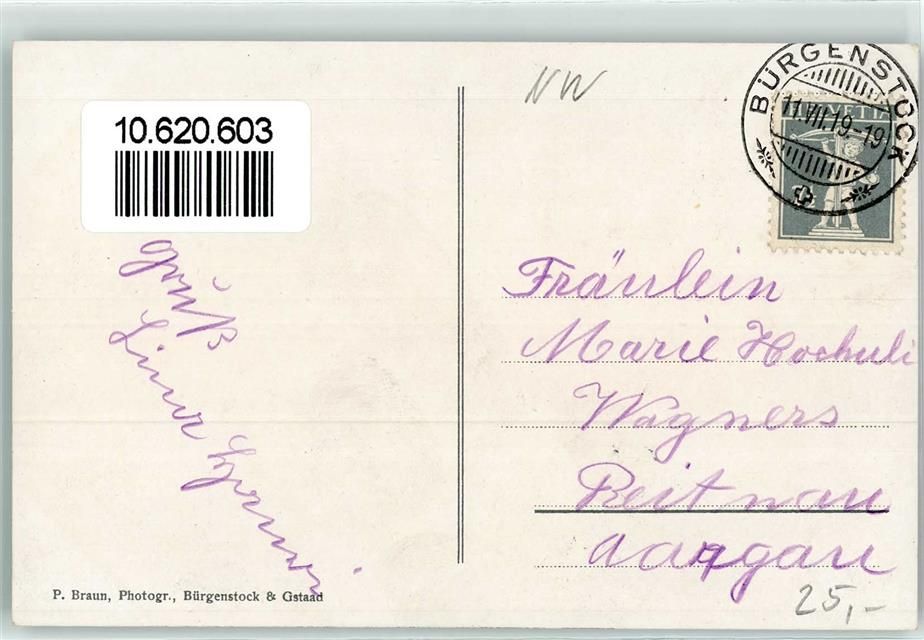 NW
BÜRGENSTOCK
11.VII.19-19
HELVETIA
10.620.603
Gruß
Lina
Fräulein
Marie Hochuli
Wagners
Reitnau
Aargau
25,-
P. Braun, Photogr., Bürgenstock & Gstaad